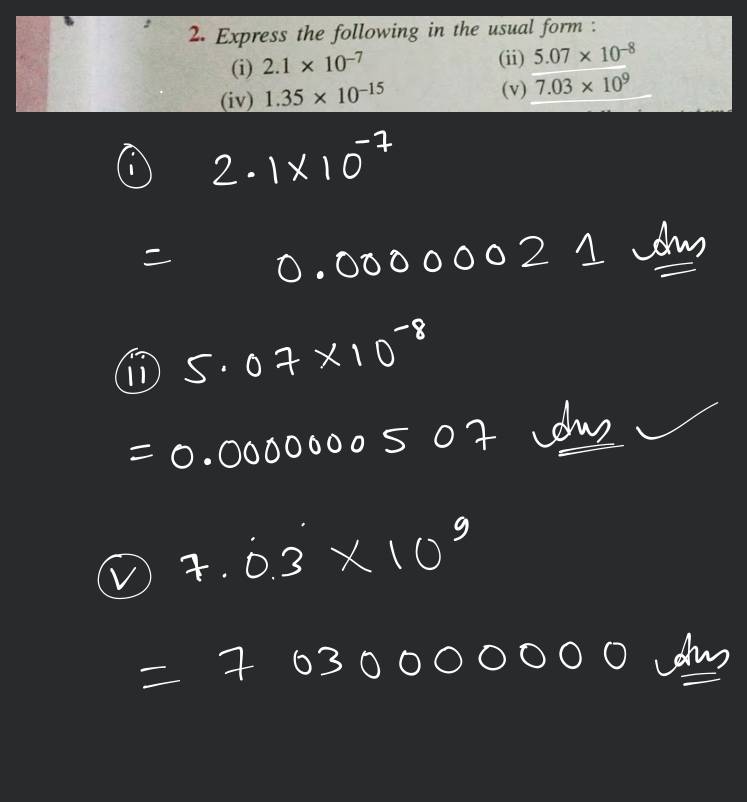 2. Express the following in the usual form :
(i) 2.1 × 10⁻⁷ (ii) 5.07 × 10⁻⁸
(iv) 1.35 × 10⁻¹⁵ (v) 7.03 × 10⁹
(i) 2.1×10⁻⁷
= 0.00000021 Ans
(ii) 5.07×10⁻⁸
= 0.0000000507 Ans ✓
(v) 7.03×10⁹
= 7030000000 Ans